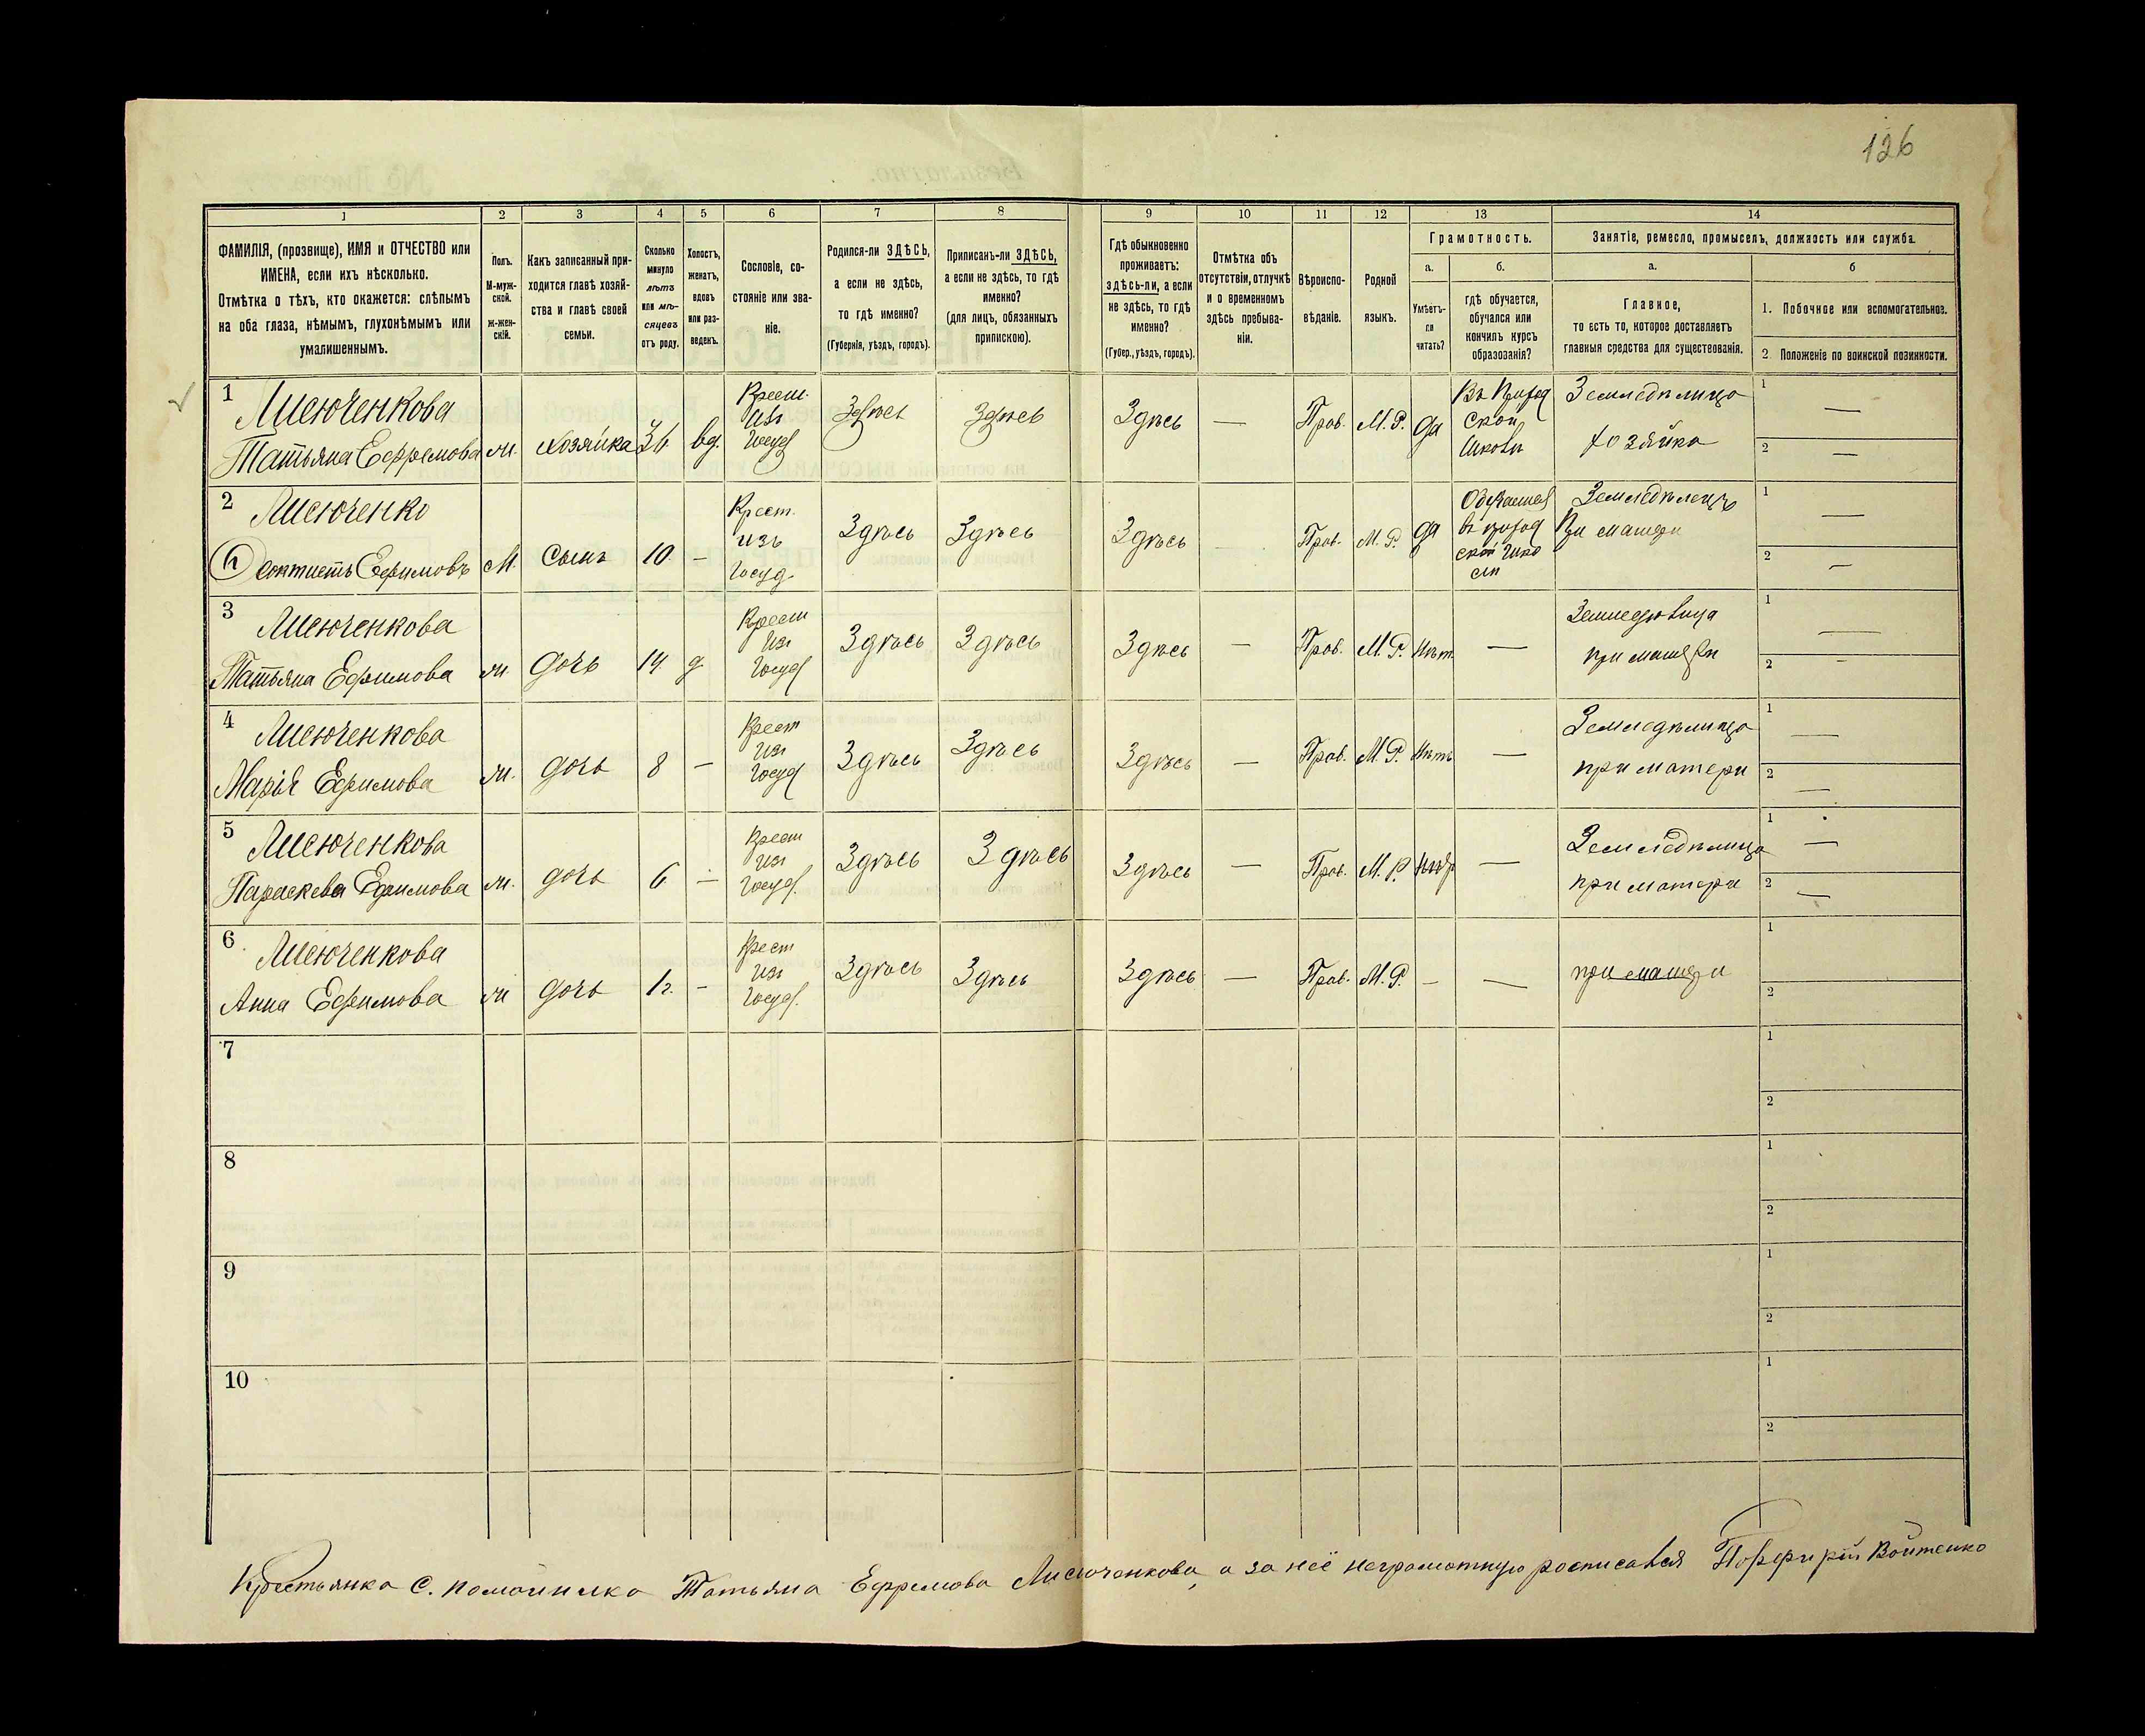 126
1 2 3 4 5 6 7 8 9 10 11 12 13 14
ФАМИЛІЯ, (прозвище), ИМЯ и ОТЧЕСТВО или
ИМЕНА, если ихъ нѣсколько.
Отмѣтка о тѣхъ, кто окажется: слѣпымъ
на оба глаза, нѣмымъ, глухонѣмымъ или
умалишеннымъ.
Полъ.
М-муж-
ской.
ж-жен-
скій.
Какъ записанный при-
ходится главѣ хозяй-
ства и главѣ своей
семьи.
Сколько
минуло
лѣтъ
или мѣ-
сяцевъ
отъ роду.
Холостъ,
женатъ,
вдовъ
или раз-
веденъ.
Сословіе, со-
стояніе или зва-
ніе.
Родился-ли ЗДѢСЬ,
а если не здѣсь,
то гдѣ именно?
(Губернія, уѣздъ, городъ).
Приписанъ-ли ЗДѢСЬ,
а если не здѣсь, то гдѣ
именно?
(для лицъ, обязанныхъ
припискою).
Гдѣ обыкновенно
проживаетъ:
здѣсь-ли, а если
не здѣсь, то гдѣ
именно?
(Губер., уѣздъ, городъ).
Отмѣтка объ
отсутствіи, отлучкѣ
и о временномъ
здѣсь пребыва-
ніи.
Вѣроиспо-
вѣданіе.
Родной
языкъ.
Грамотность.
а.
Умѣетъ-
ли
читать?
б.
гдѣ обучается,
обучался или
кончилъ курсъ
образованія?
Занятіе, ремесло, промыселъ, должность или служба.
а.
Главное,
то есть то, которое доставляетъ
главныя средства для существованія.
б
1. Побочное или вспомогательное.
2 Положеніе по воинской повинности.
1
Лисюченкова
Татьяна Ефремова
хозяйка
вд.
Крест.
изъ
Госуд
Здѣсь
Здѣсь
Здѣсь
—
Прав.
М. Р.
да
Въ Приход
ской
Школѣ
Земледѣлица
хозяйка
1 —
2 —
2
Лисюченко
Ефимовъ
М.
Сынъ
10
—
Крест.
изъ
Госуд.
Здѣсь
Здѣсь
Здѣсь
—
Прав.
М. Р.
да
Обучается
въ приход
ской шко
лѣ
Земледѣлецъ
При матери
1 —
2 —
3
Лисюченкова
Татьяна Ефимова
дочь
14
д.
Крест
изъ
Госуд
Здѣсь
Здѣсь
Здѣсь
—
Прав.
М. Р.
Нѣт.
—
при матери
1 —
2 -
4
Лисюченкова
Марія Ефимова
дочь
8
—
Крест
изъ
Госуд
Здѣсь
Здѣсь
Здѣсь
—
Прав.
М. Р.
Нѣтъ
—
Земледѣлица
при матери
1 —
2 —
5
Лисюченкова
Параскева Ефимова
дочь
6
—
Крест
изъ
Госуд.
Здѣсь
Здѣсь
Здѣсь
—
Прав.
М. Р.
—
Земледѣлица
при матери
1 —
2 —
6
Лисюченкова
Анна Ефимова
дочь
1 г.
-
Крест
изъ
Госуд.
Здѣсь
Здѣсь
Здѣсь
—
Прав.
М. Р.
-
—
при матери
1
2
7
1
2
8
1
2
9
1
2
10
1
2
Крестьянка С. Татьяна Ефремова Лисюченкова, а за неё неграмотную росписался Порфирій Войтенко